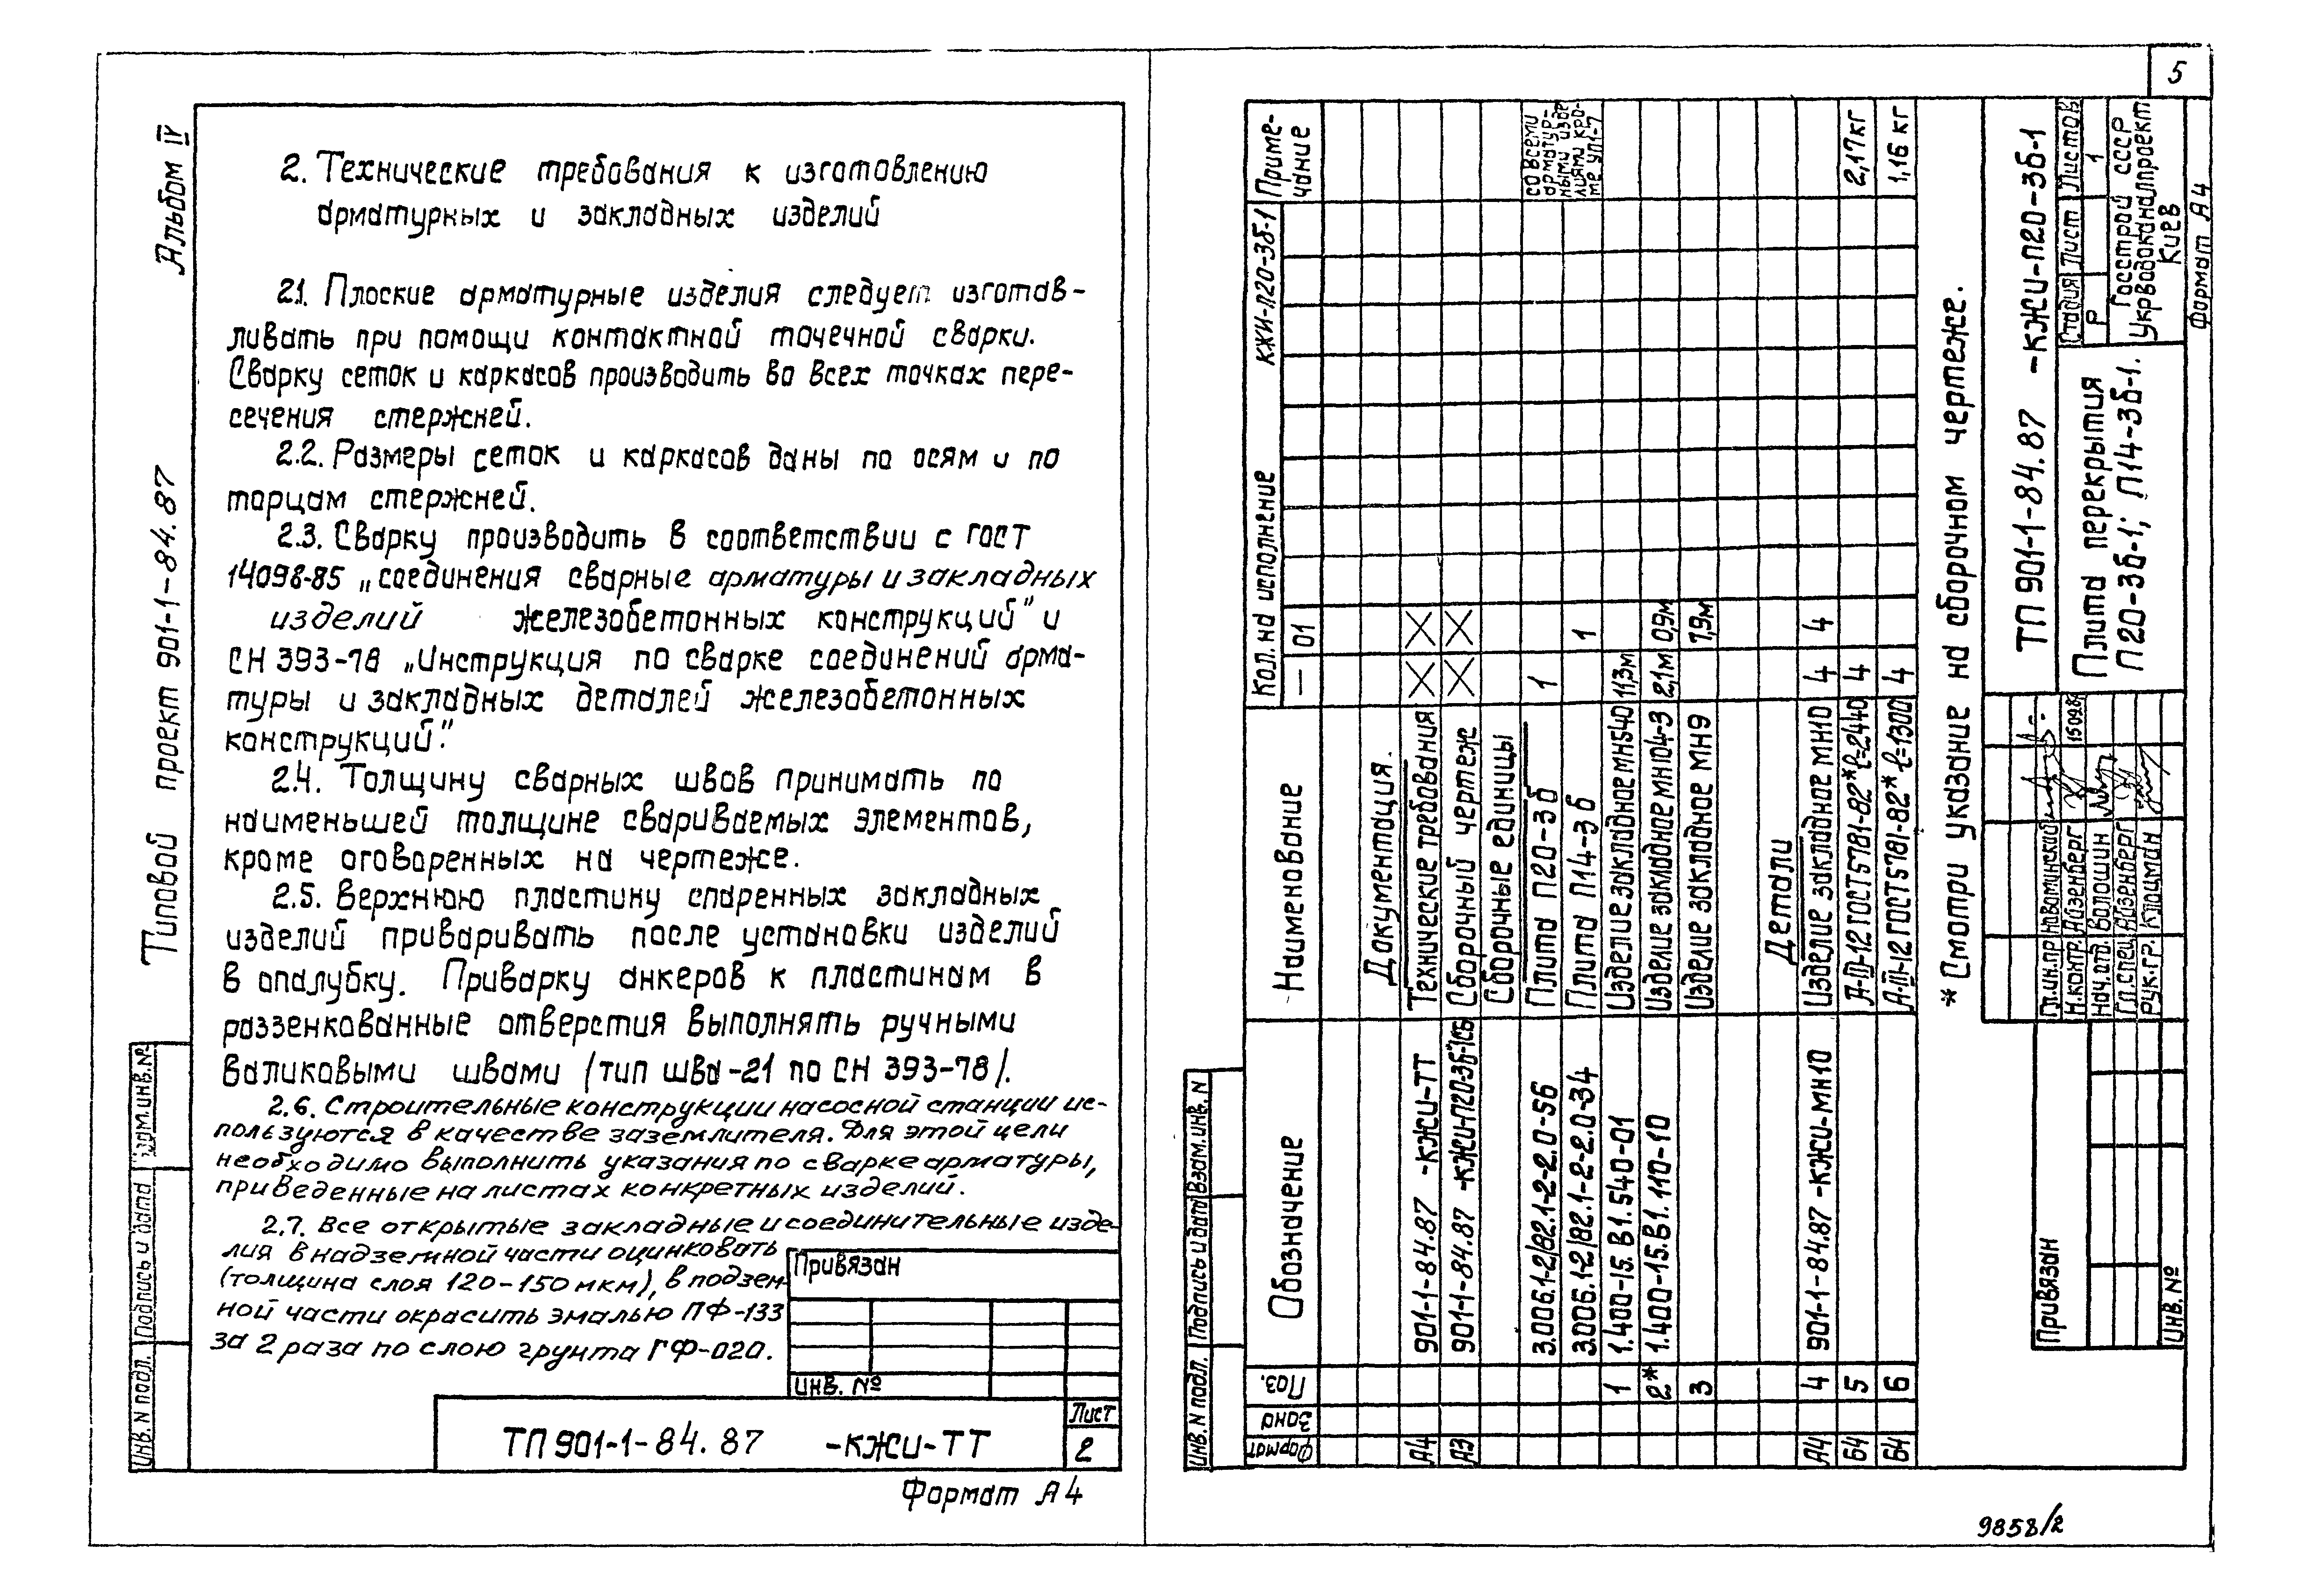 5
Альбом IV
Типовой проект 901-1-84.87
2. Технические требования к изготовлению
арматурных и закладных изделий
2.1. Плоские арматурные изделия следует изготав-
ливать при помощи контактной точечной сварки.
Сварку сеток и каркасов производить во всех точках пере-
сечения стержней.
2.2. Размеры сеток и каркасов даны по осям и по
торцам стержней.
2.3. Сварку производить в соответствии с ГОСТ
14098-85 „соединения сварные арматуры и закладных
изделий железобетонных конструкций" и
СН 393-78 „Инструкция по сварке соединений арма-
туры и закладных деталей железобетонных
конструкций".
2.4. Толщину сварных швов принимать по
наименьшей толщине свариваемых элементов,
кроме оговоренных на чертеже.
2.5. Верхнюю пластину спаренных закладных
изделий приваривать после установки изделий
в опалубку. Приварку анкеров к пластинам в
раззенкованные отверстия выполнять ручными
валиковыми швами (тип шва-21 по СН 393-78).
2.6. Строительные конструкции насосной станции ис-
пользуются в качестве заземлителя. Для этой цели
необходимо выполнить указания по сварке арматуры,
приведенные на листах конкретных изделий.
2.7. Все открытые закладные и соединительные изде-
лия в надземной части оцинковать
(толщина слоя 120-150 мкм), в подзем-
ной части окрасить эмалью ПФ-133
за 2 раза по слою грунта ГФ-020.
Привязан
ИНВ. №
ТП 901-1-84.87 -КЖИ-ТТ
Лист
2
Формат А4
Инв. N подл. Подпись и дата Взам.инв.№
Инв. N подл. Подпись и дата Взам.инв. N
Формат Зона Поз. Обозначение Наименование Кол. на исполнение КЖИ-П20-3б-1 Приме-
чание
— 01
Документация
А4 901-1-84.87 -КЖИ-ТТ Технические требования X X
А3 901-1-84.87 -КЖИ-П20-3б-1СБ Сборочный чертеж X X
Сборочные единицы
3.006.1-2/82.1-2-2.0-56 Плита П20-3б 1 со всеми
арматур-
ными изде
3.006.1-2/82.1-2-2.0-34 Плита П14-3б 1 лиями кро-
ме УП1-7
1 1.400-15.В1.540-01 Изделие закладное МН540 11,3м
2* 1.400-15.В1.110-10 Изделие закладное МН104-3 2,1м 0,9м
3 Изделие закладное МН9 7,9м
Детали
А4 4 901-1-84.87 -КЖИ-МН10 Изделие закладное МН10 4 4
Б4 5 А-III-12 ГОСТ5781-82* ℓ=2440 4 2,17кг
Б4 6 А-III-12 ГОСТ5781-82* ℓ=1300 4 1,16 кг
* Смотри указание на сборочном чертеже.
ТП 901-1-84.87 -КЖИ-П20-3б-1
Гл.ин.пр
Н.контр. Айзенберг 15.09.87
Нач.отд. Волошин
Гл.спец. Айзенберг
Рук.гр. Клоцман
Плита перекрытия
П20-3б-1; П14-3б-1.
Стадия Лист Листов
Р 1
Госстрой СССР
Укрводоканалпроект
Киев
Привязан
ИНВ. №
Формат А4
9858/2